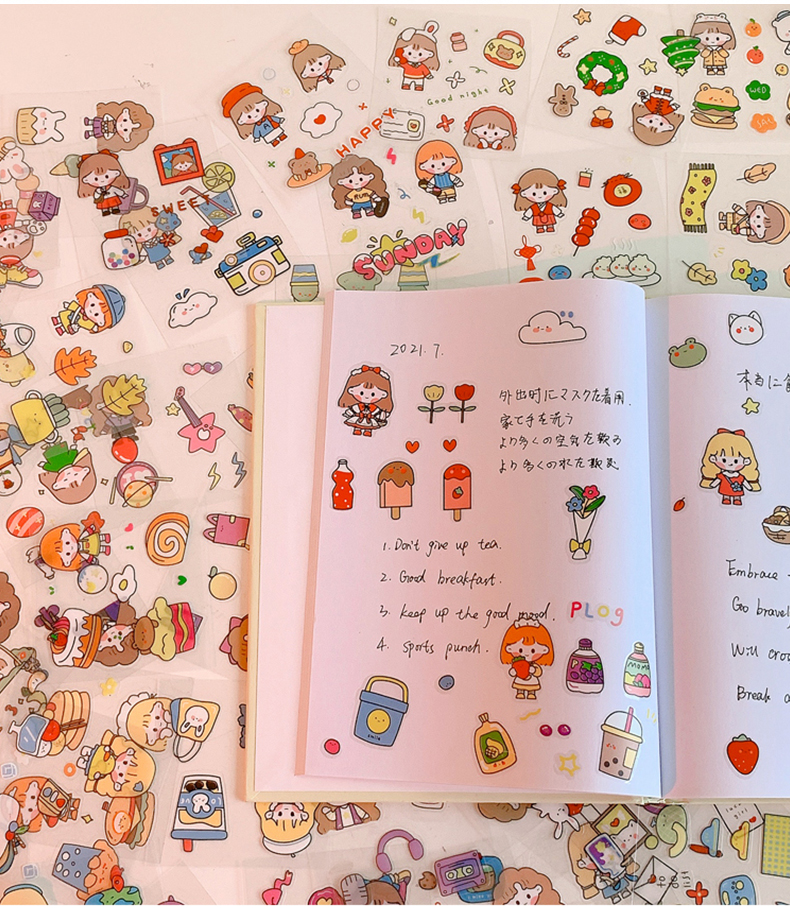 Good night
HAPPY
WED
SWEET
SUNDAY
2021.7.
外出時にマスクを着用.
家で手を洗う
より多くの空気を散る
1. Don't give up tea.
2. Good breakfast.
3. keep up the good mood.
4. sports punch.
PLOG
MOMO
本当に
Embrace
Go bravel
Will
Break a